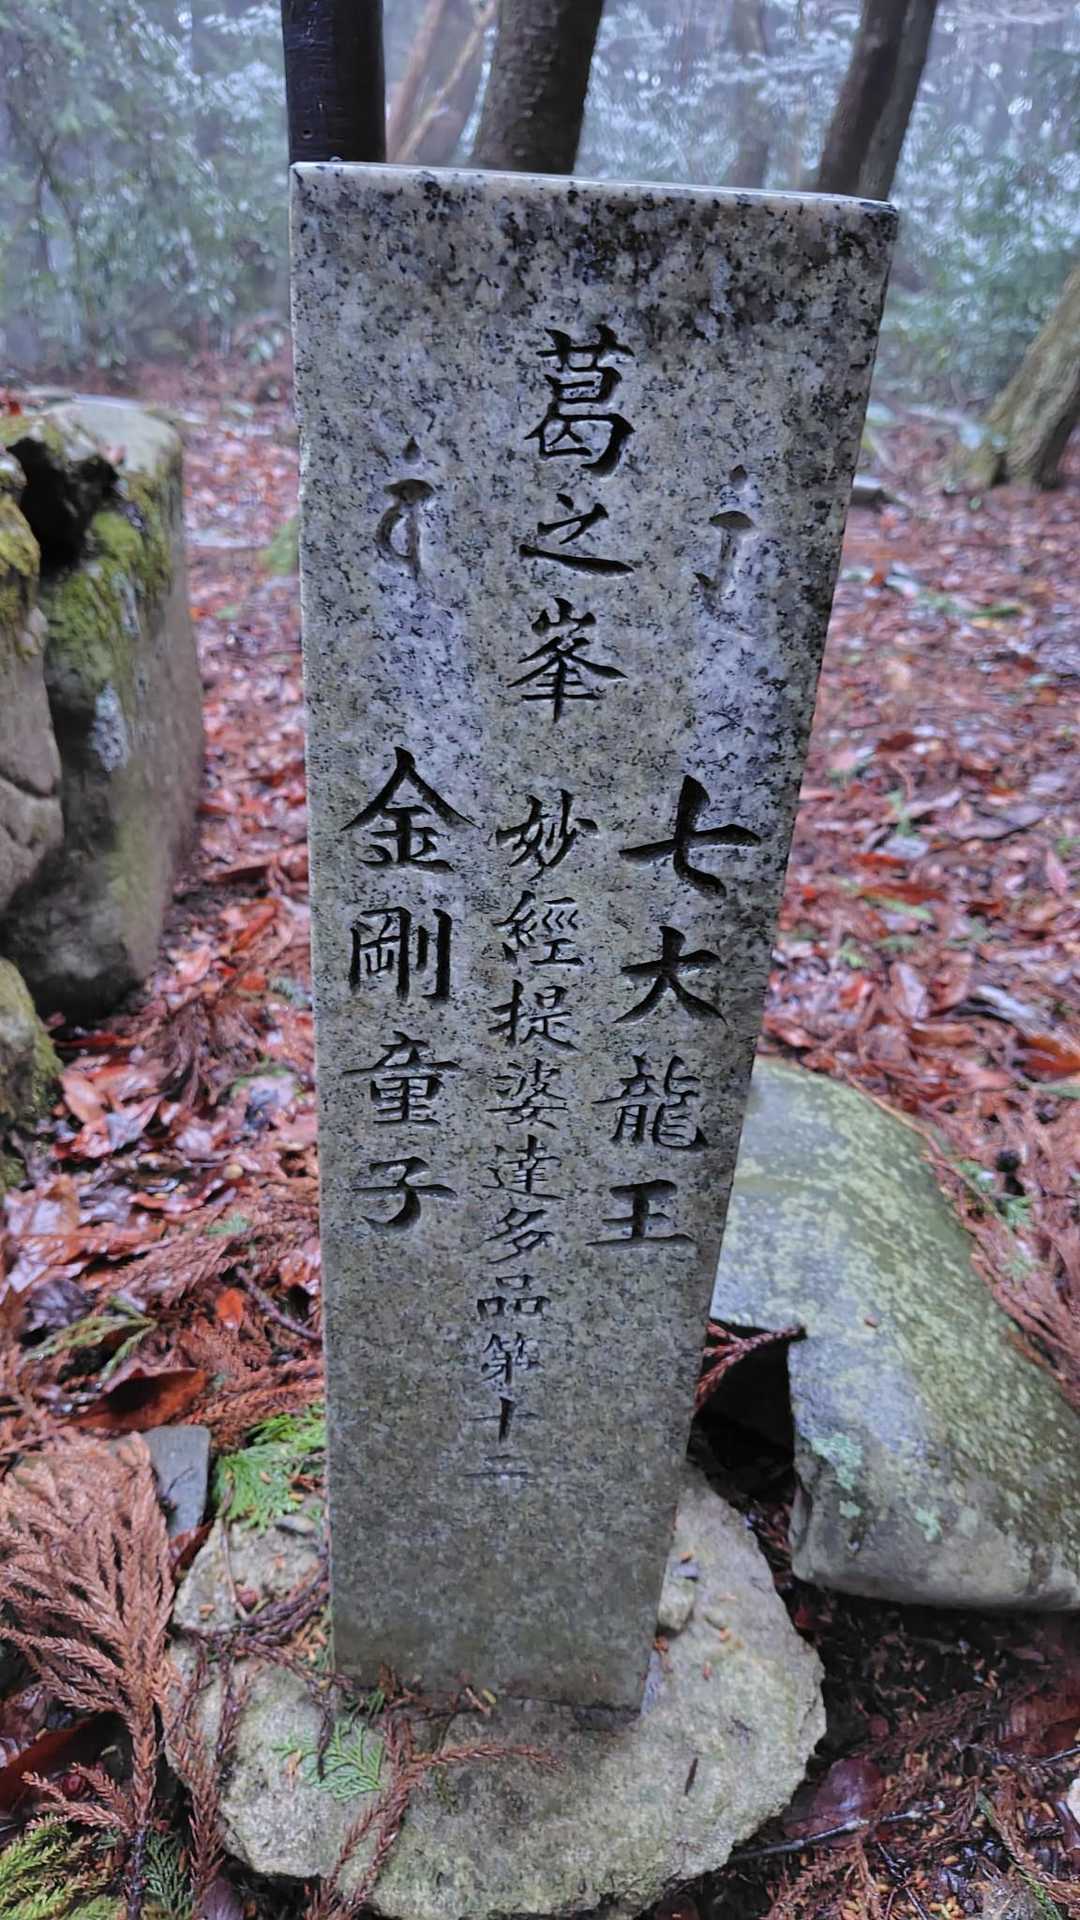 七大龍王
葛之峯
妙經提婆達多品第十二
金剛童子